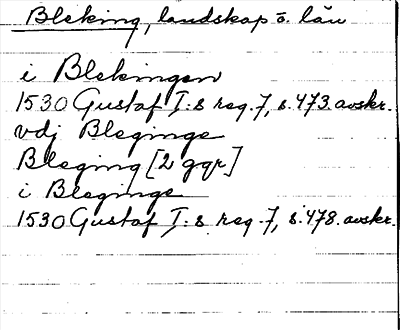 Bleking, landskap o. län
i Blekingen
1530 Gustaf I:s reg. 7, s. 473. avskr.
vdj Bleginge
Bleging [2 ggr]
i Bleginge
1530 Gustaf I:s reg. 7, s. 478. avskr.